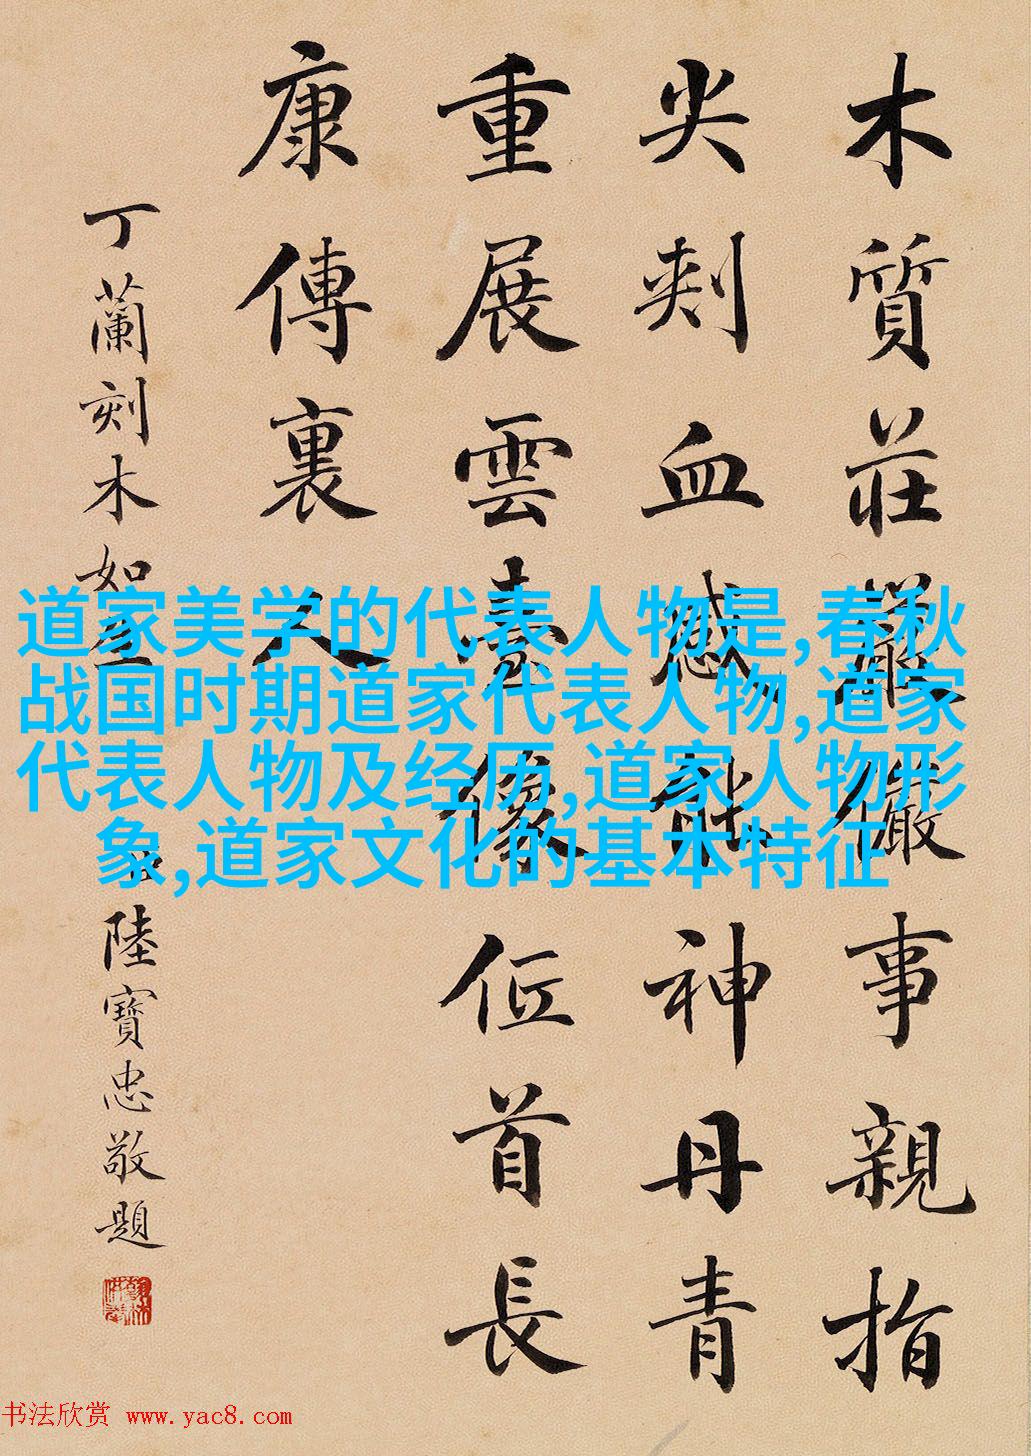 木質莊嚴儼事親指
尖刾血感能神丹青
重展雲臺像低首長
康傳裏人
丁蘭刻木如
陸寶忠敬題
道家美学的代表人物是,春秋
战国时期道家代表人物,道家
代表人物及经历,道家人物形
象,道家文化的基本特征
书法欣赏 www.yac8.com